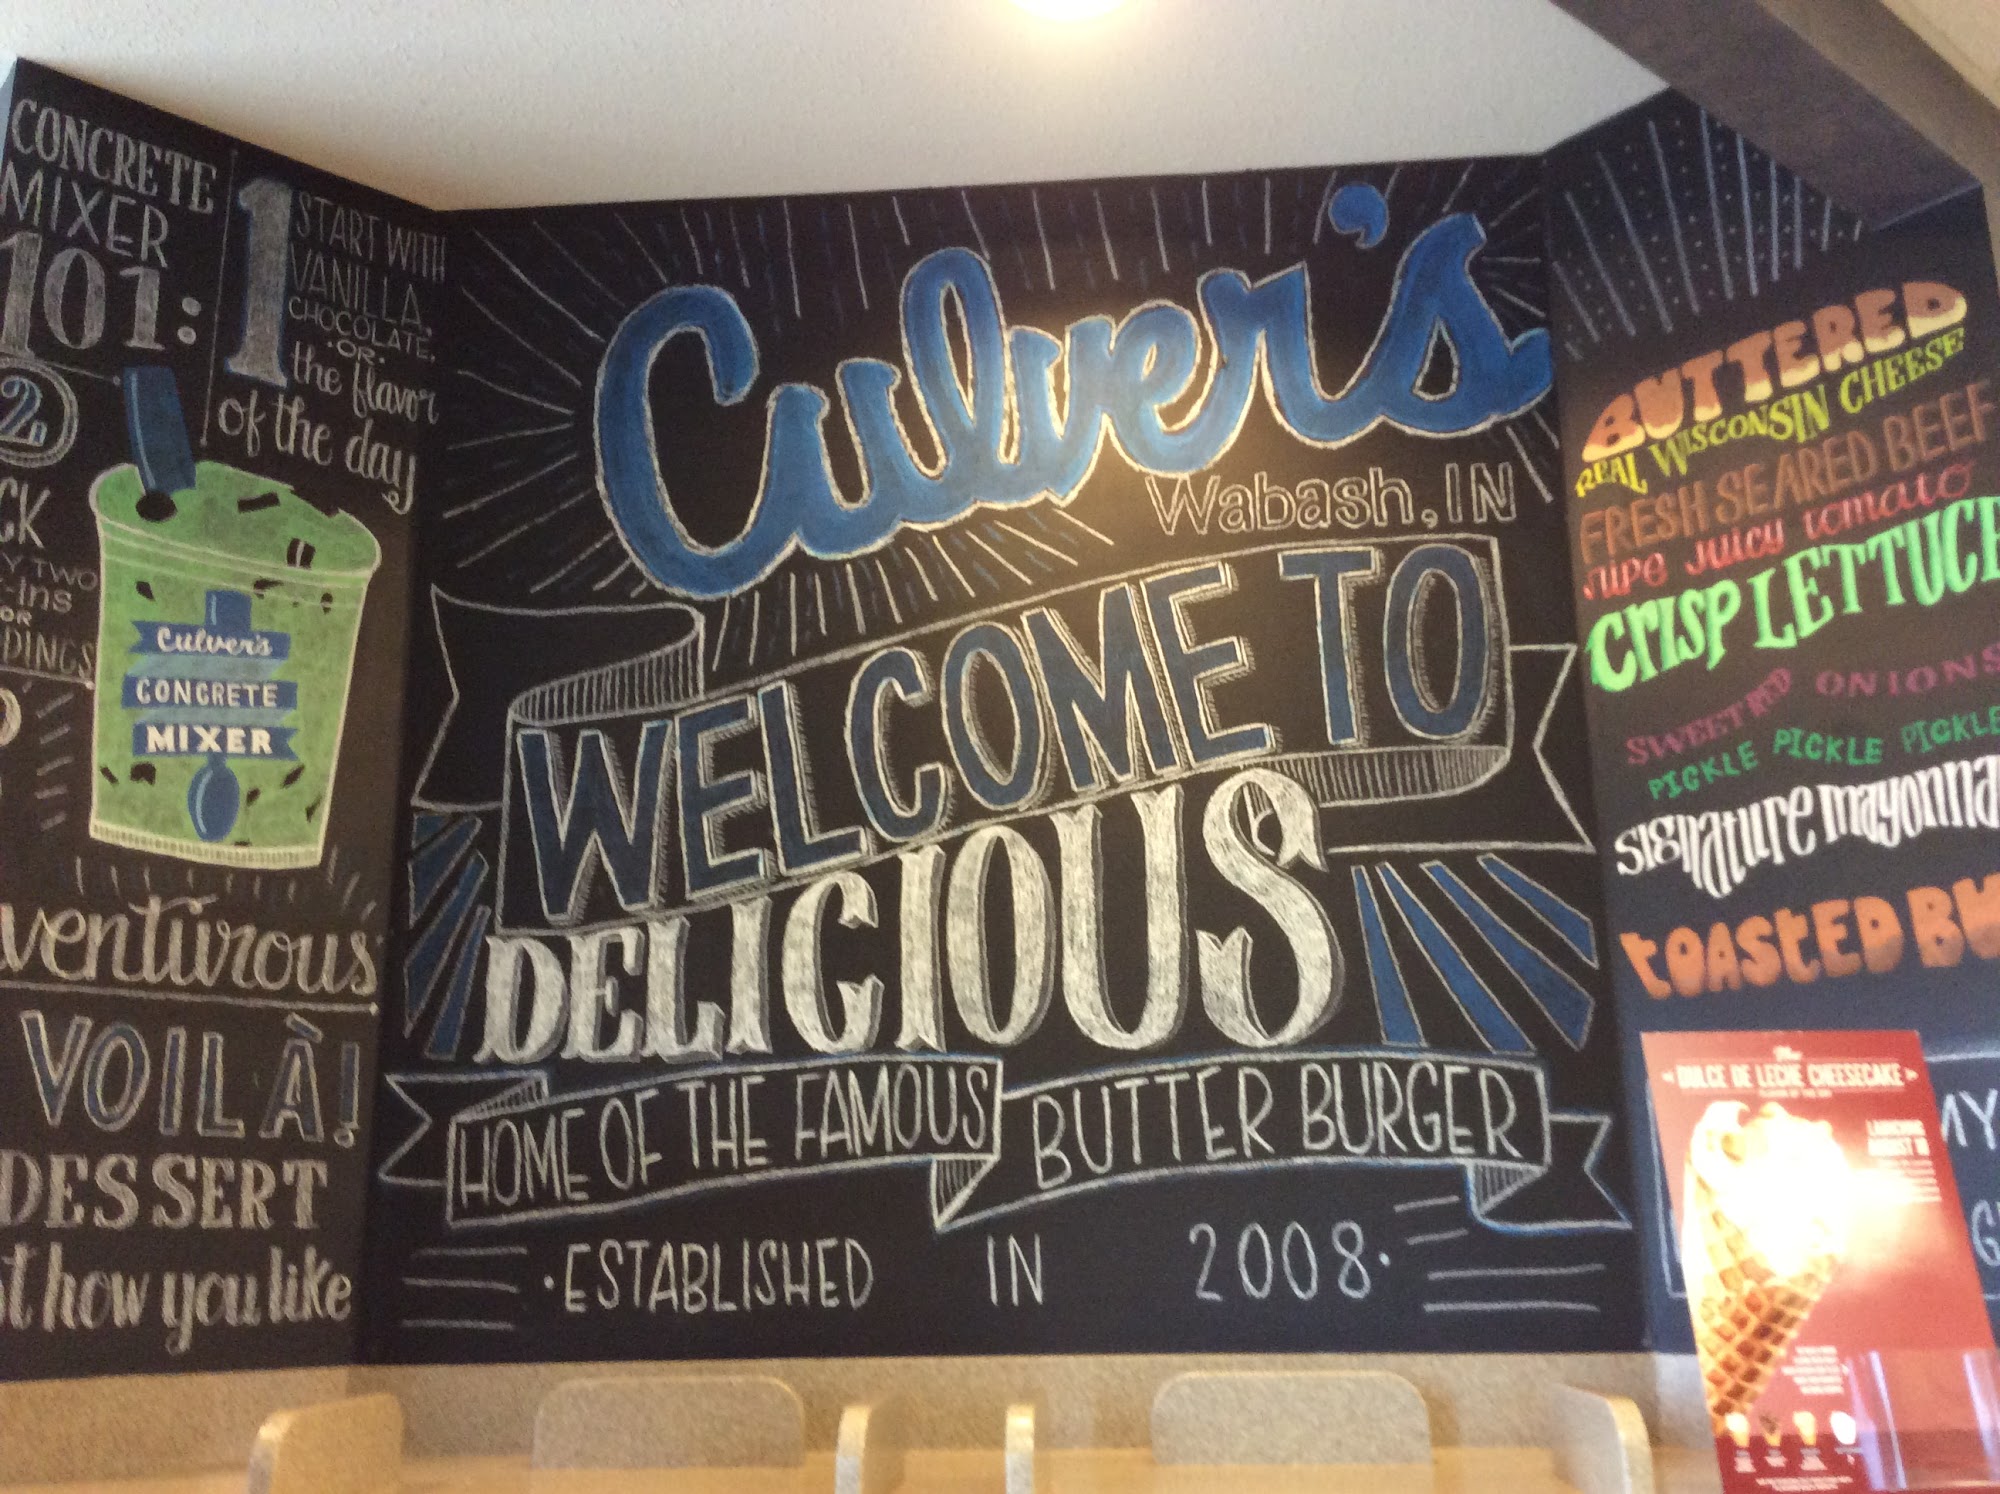 CONCRETE
MIXER
101:
1 START WITH
VANILLA,
CHOCOLATE,
·OR·
the flavor
of the day
2
TWO
OR
Culver's
CONCRETE
MIXER
VOILÀ!
DESSERT
how you like
Culver's
Wabash, IN
WELCOME TO
DELICIOUS
HOME OF THE FAMOUS BUTTER BURGER
·ESTABLISHED IN 2008·
BUTTERED
REAL WISCONSIN CHEESE
FRESH SEARED BEEF
ripe juicy tomato
CRISP LETTUCE
SWEET RED ONIONS
PICKLE PICKLE PICKLE
signature mayonna
TOASTED BU
The
DULCE DE LECHE CHEESECAKE
FLAVOR OF THE DAY
LAUNCHING
AUGUST 18
MY